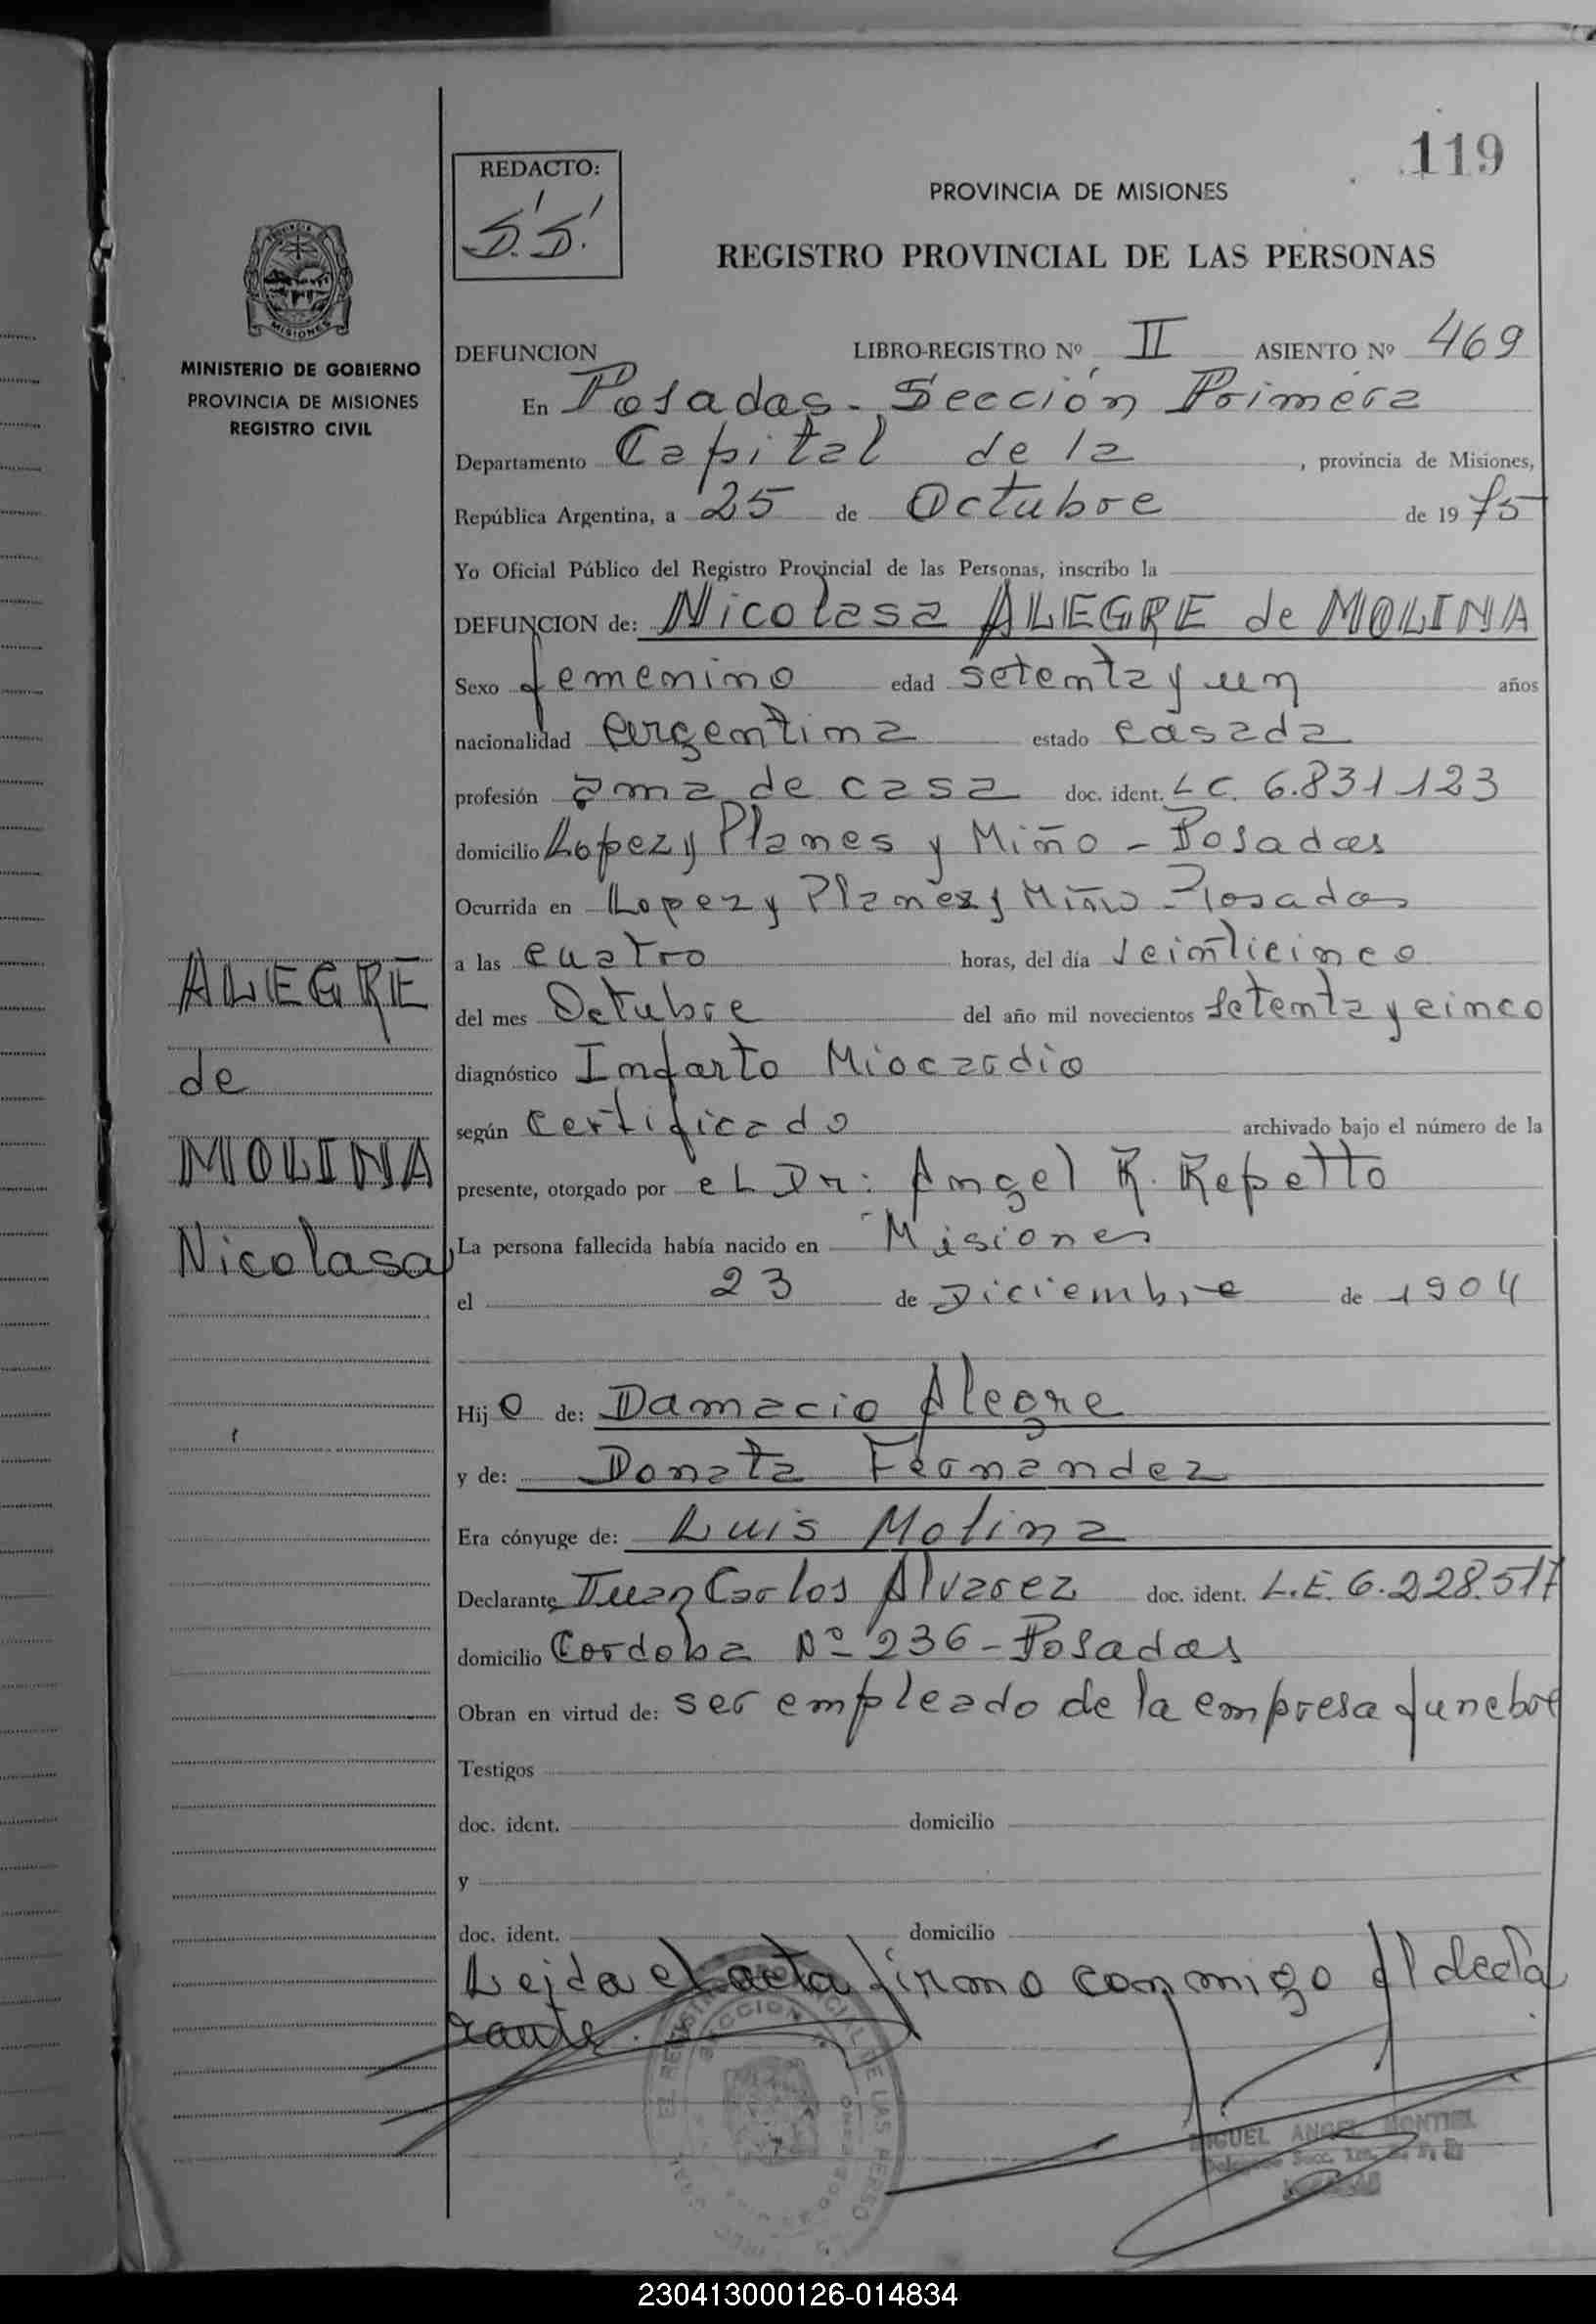 119
REDACTO:
S.S.
PROVINCIA DE MISIONES
REGISTRO PROVINCIAL DE LAS PERSONAS
MISIONES
MINISTERIO DE GOBIERNO
PROVINCIA DE MISIONES
REGISTRO CIVIL
DEFUNCION LIBRO-REGISTRO Nº II ASIENTO Nº 469
En Posadas - Sección Primera
Departamento Capital de la , provincia de Misiones,
República Argentina, a 25 de Octubre de 1975
Yo Oficial Público del Registro Provincial de las Personas, inscribo la
DEFUNCION de: Nicolasa ALEGRE de MOLINA
Sexo femenino edad setenta y un años
nacionalidad argentina estado casada
profesión ama de casa doc. ident. LC. 6.831.123
domicilio Lopez y Planes y Miño - Posadas
Ocurrida en Lopez y Planes y Miño - Posadas
a las cuatro horas, del día veinticinco
del mes Octubre del año mil novecientos setenta y cinco
diagnóstico Infarto Miocardio
según certificado archivado bajo el número de la
presente, otorgado por el Dr: Angel R. Repetto
La persona fallecida había nacido en Misiones
el 23 de Diciembre de 1904
ALEGRE
de
MOLINA
Nicolasa
Hijo de: Damacio Alegre
y de: Donata Fernandez
Era cónyuge de: Luis Molina
Declarante Juan Carlos Alvarez doc. ident. L.E. 6.228.517
domicilio Cordoba Nº 236 - Posadas
Obran en virtud de: ser empleado de la empresa funebre
Testigos
doc. ident. domicilio
y
doc. ident. domicilio
Leida el acta firmo conmigo el decla
rante.
MIGUEL ANGEL MONTIEL
230413000126-014834